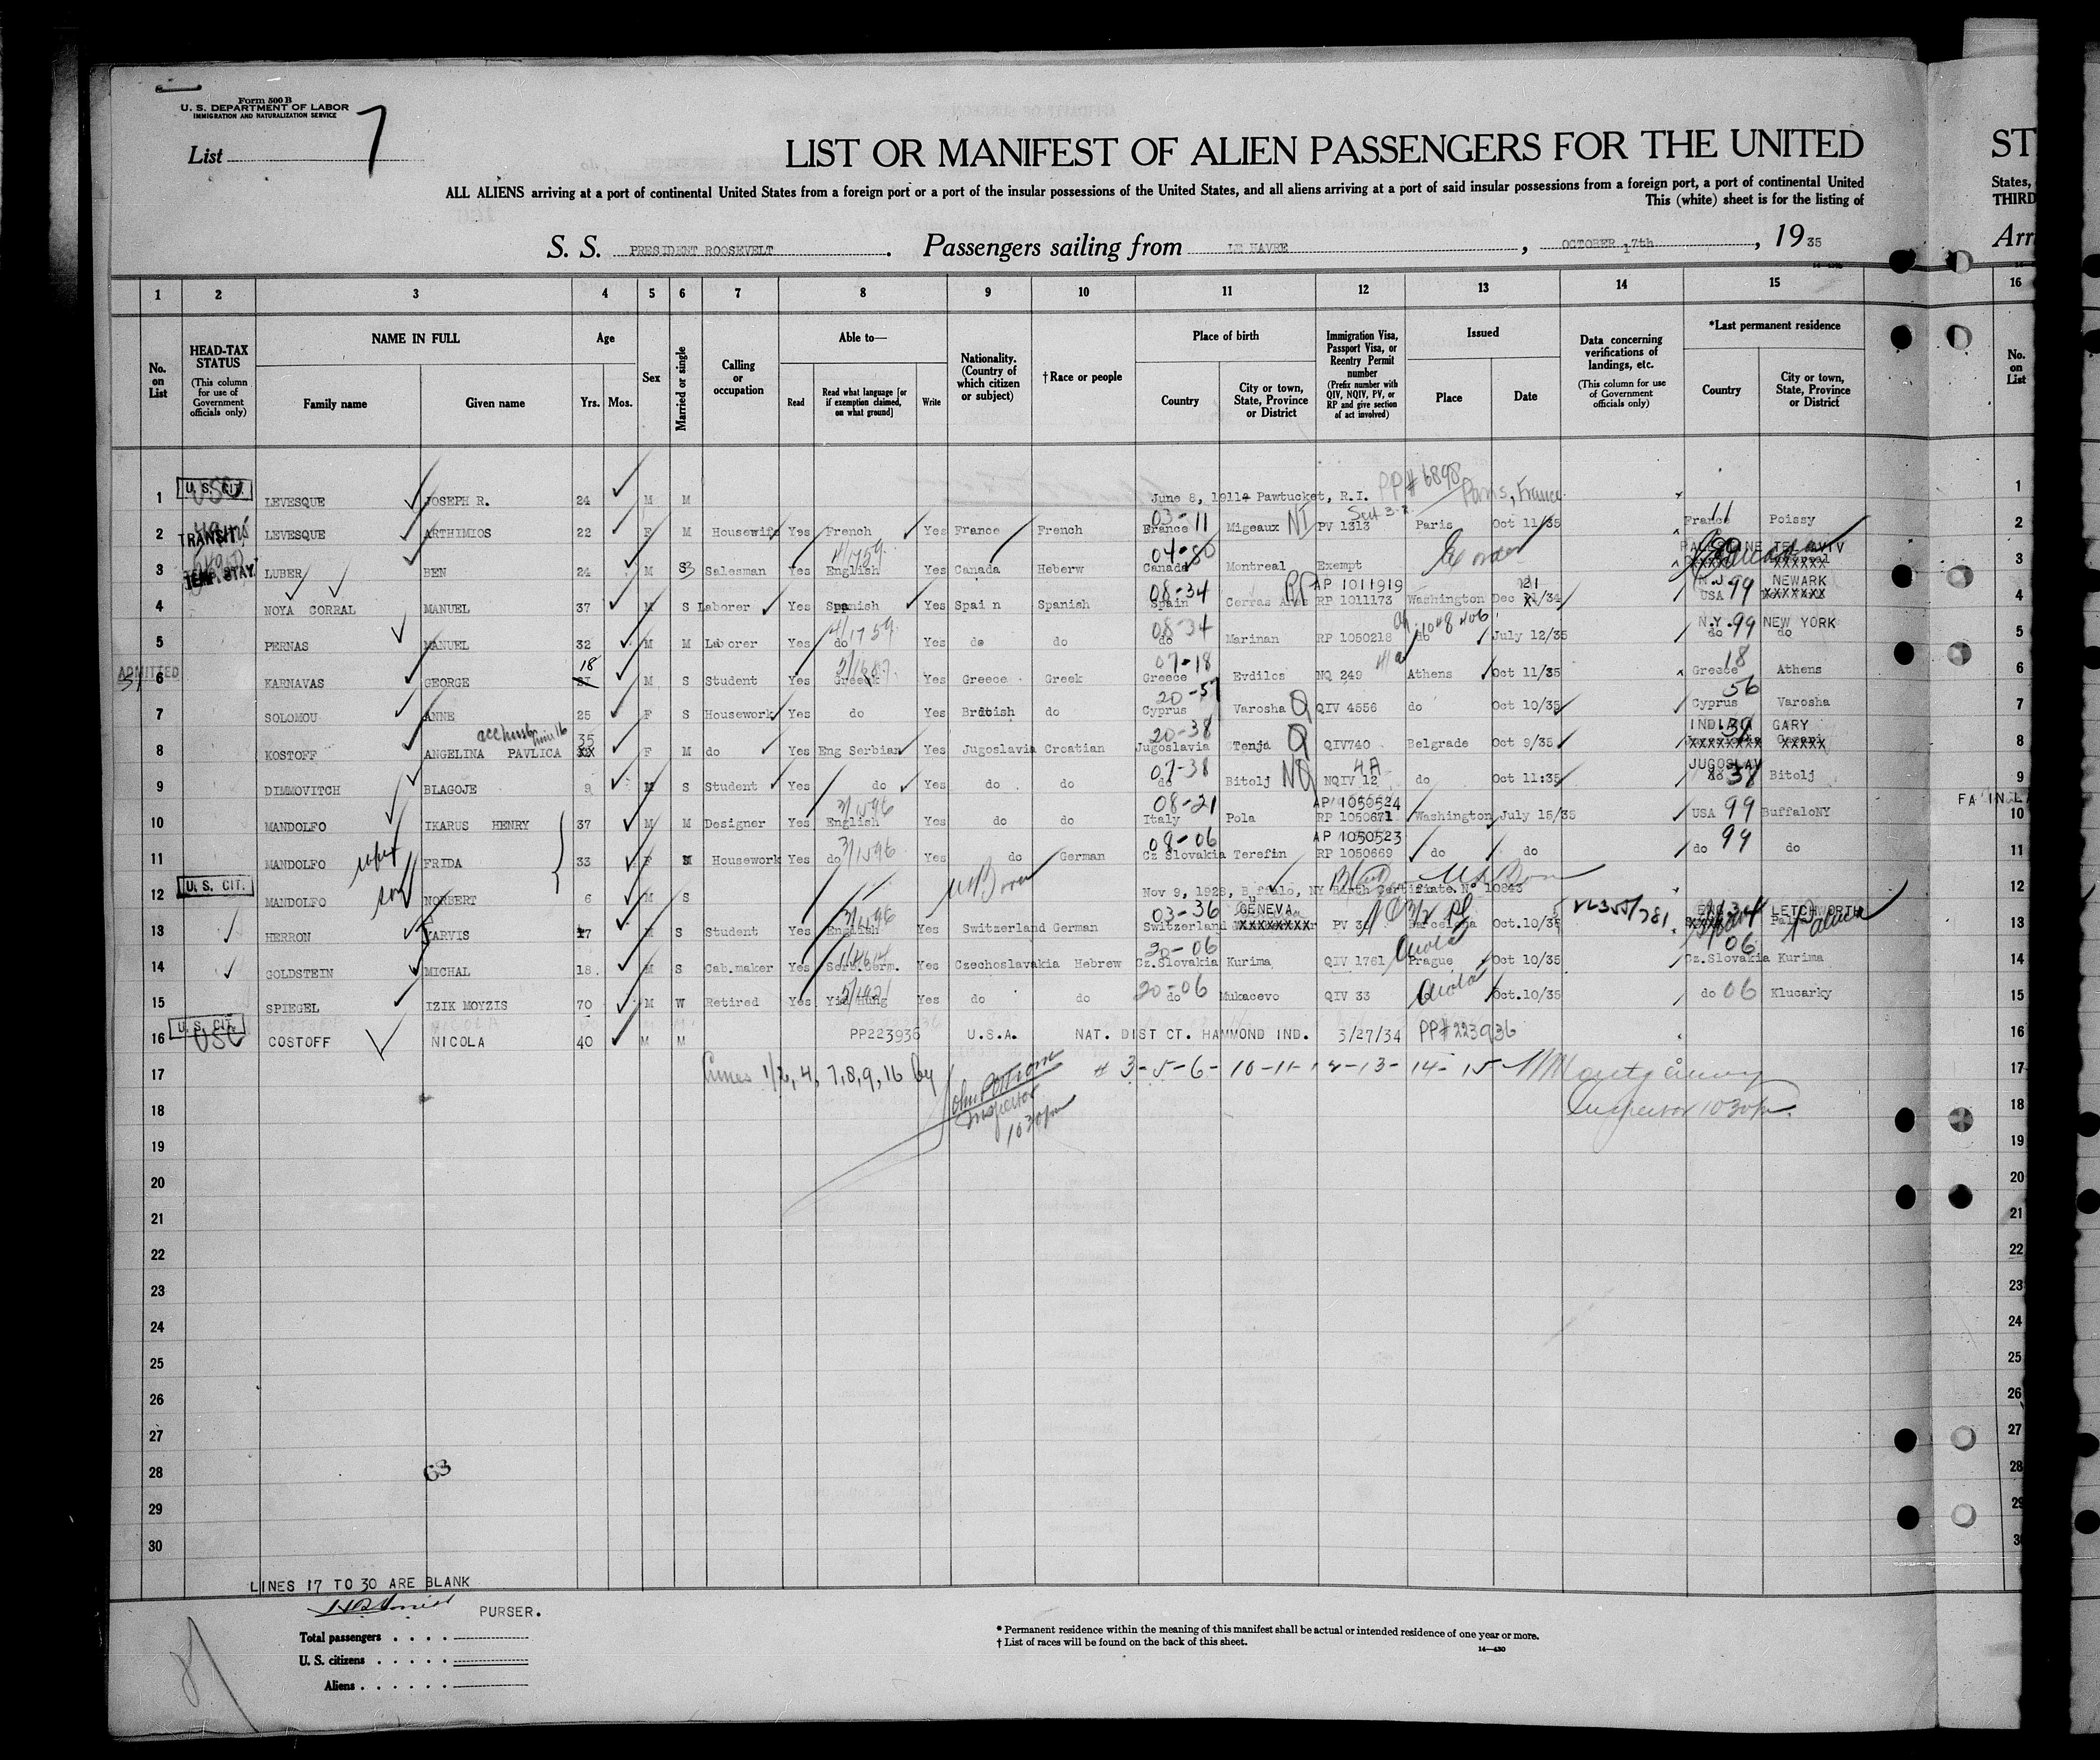 Form 500 B
U. S. DEPARTMENT OF LABOR
IMMIGRATION AND NATURALIZATION SERVICE
List 7
LIST OR MANIFEST OF ALIEN PASSENGERS FOR THE UNITED ST
ALL ALIENS arriving at a port of continental United States from a foreign port or a port of the insular possessions of the United States, and all aliens arriving at a port of said insular possessions from a foreign port, a port of continental United States,
This (white) sheet is for the listing of THIRD
S. S. PRESIDENT ROOSEVELT. Passengers sailing from LE HAVRE, OCTOBER 17th, 1935 Arr
1 2 3 4 5 6 7 8 9 10 11 12 13 14 15 16
No. on List
HEAD-TAX STATUS (This column for use of Government officials only)
NAME IN FULL Family name Given name
Age Yrs. Mos.
Sex
Married or single
Calling or occupation
Able to— Read Read what language [or if exemption claimed, on what ground] Write
Nationality. (Country of which citizen or subject)
†Race or people
Place of birth Country City or town, State, Province or District
Immigration Visa, Passport Visa, or Reentry Permit number (Prefix number with QIV, NQIV, PV, or RP and give section of act involved)
Issued Place Date
Data concerning verifications of landings, etc. (This column for use of Government officials only)
*Last permanent residence Country City or town, State, Province or District
No. on List
1 U. S. CIT. USC LEVESQUE JOSEPH R. 24 M M June 8, 1911 Pawtucket, R.I. PP# 6898 Paris, France 1
2 TRANSIT LEVESQUE ARTHIMIOS 22 F M Housewife Yes French Yes France French 03-11 France Migeaux NI PV 1313 Sec 3-2. Paris Oct 11/35 11 France Poissy 2
3 TEMP. STAY LUBER BEN 24 M S Salesman Yes English Yes Canada Heberw 04-80 Canada Montreal Exempt PALESTINE TEL AVIV XXXXXX 3
4 NOYA CORRAL MANUEL 37 M S Laborer Yes Spanish Yes Spain Spanish 08-34 Spain Cerras Ares RP AP 1011919 RP 1011173 Washington Dec 21/34 N.J. USA 99 NEWARK XXXXXXX 4
5 PERNAS MANUEL 32 M M Laborer Yes do 4/1759 Yes do do 08-34 do Marinan RP 1050218 do July 12/35 N.Y. do 99 NEW YORK do 5
ADMITTED 6 KARNAVAS GEORGE 18 21 M S Student Yes Greek Yes Greece Greek 07-18 Greece Evdilos NQ 249 Athens Oct 11/35 18 Greece Athens 6
7 SOLOMOU ANNE 25 F S Housework Yes do Yes British do 20-57 Cyprus Varosha Q QIV 4556 do Oct 10/35 56 Cyprus Varosha 7
8 KOSTOFF ANGELINA PAVLICA 35 XX F M do Yes Eng Serbian Yes Jugoslavia Croatian 20-38 Jugoslavia Tenja Q QIV740 Belgrade Oct 9/35 INDIANA GARY XXXXXXXXX XXXXX 8
9 DIMMOVITCH BLAGOJE 9 M S Student Yes do Yes do do 07-38 do Bitolj NQ 4A NQIV 12 do Oct 11:35 JUGOSLAV do 38 Bitolj 9
FA IN L
10 MANDOLFO IKARUS HENRY 37 M M Designer Yes English 3/1596 Yes do do 08-21 Italy Pola AP 1050524 RP 1050671 Washington July 15/35 USA 99 BuffaloNY 10
11 MANDOLFO wife FRIDA 33 F M Housework Yes do 3/1596 Yes do German 08-06 Cz Slovakia Terefin AP 1050523 RP 1050669 do do do 99 do 11
12 U. S. CIT. MANDOLFO son NORBERT 6 M S Nov 9, 1928, Buffalo, NY Birth Certificate No 10843 12
13 HERRON JARVIS 17 M S Student Yes English Yes Switzerland German 03-36 Switzerland GENEVA XXXXXXXX PV 34 Barcelona Oct.10/35 LETCHWORTH 13
14 GOLDSTEIN MICHAL 18 M S Cab.maker Yes Yes Czechoslavakia Hebrew 20-06 Cz.Slovakia Kurima QIV 1761 Prague Oct 10/35 06 Cz.Slovakia Kurima 14
15 SPIEGEL IZIK MOYZIS 70 M W Retired Yes Yid Hung Yes do do 20-06 do Mukacevo QIV 33 Oct.10/35 do 06 Klucarky 15
16 U. S. CIT. USC COSTOFF NICOLA 40 M M PP223936 U.S.A. NAT. DIST CT. HAMMOND IND. 3/27/34 PP# 223936 16
17 Lines 1/2, 4, 7,8,9, 16 by # 3-5-6-10-11-12-13-14-15 17
18 Inspector 1030pm Inspector 1030pm. 18
19 19
20 20
21 21
22 22
23 23
24 24
25 25
26 26
27 27
28 63 28
29 29
30 30
LINES 17 TO 30 ARE BLANK
PURSER.
Total passengers
U. S. citizens
Aliens
* Permanent residence within the meaning of this manifest shall be actual or intended residence of one year or more.
† List of races will be found on the back of this sheet.
14—430